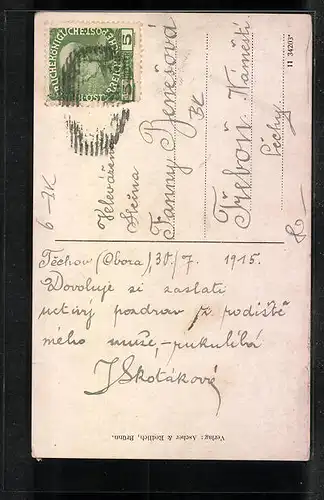 KAISERLICHE KÖNIGLICHE ÖSTERREICHISCHE POST
5
Velevážená
Slečna
Fanny Benešová
Třeboň Náměstí
Čechy
11 34203*
Těchov (Obora), 30./7. 1915.
Dovoluje si zaslati
uctivý pozdrav z rodiště
mého muže, – rukulíbá
J Skotákové
Verlag: Ascher & Redlich, Brünn.